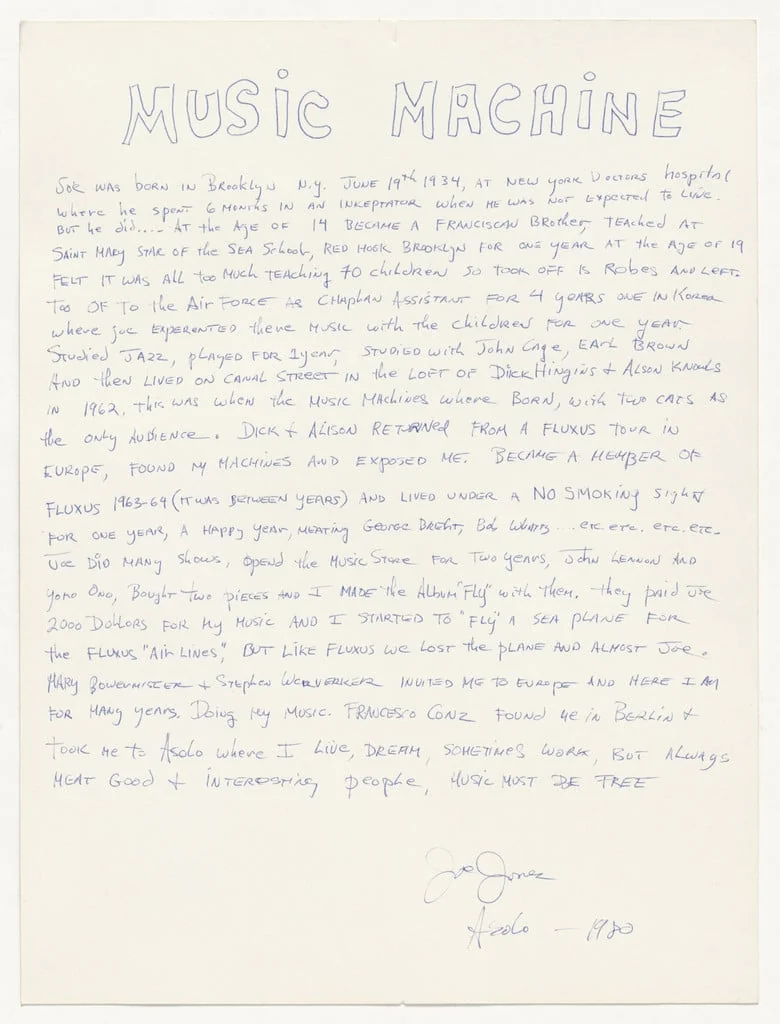 MUSIC MACHINE
JOE WAS BORN IN BROOKLYN N.Y. JUNE 19th 1934, AT NEW YORK DOCTORS hospital
where he spent 6 MONTHS IN AN INKEPTATOR WHEN HE WAS NOT EXPECTED TO LIVE.
BUT he did.... AT the AGE OF 14 BECAME A FRANCISCAN BROTHER, TEACHED AT
SAINT MARY STAR OF the SEA School, RED HOEK BROOKLYN FOR ONE YEAR AT the AGE OF 19
FELT IT WAS ALL TOO MUCH TEACHING 70 children SO TOOK OFF IS Robes AND LEFT.
TOO OF TO the AIR FORCE AS CHAPLAN ASSISTANT FOR 4 YEARS ONE IN KOREA
where joe EXPERENTED there MUSIC with the children FOR ONE YEAR.
Studied JAZZ, PLAYED FOR 1 year, STUDIED with John Cage, EARL BROWN
AND then LIVED ON CANAL STREET IN the LOFT OF DICK HINGINS + ALSON KNOWLS
IN 1962. THIS WAS WHEN the MUSIC MACHINES WHERE BORN, with TWO CATS AS
the ONLY AUDIENCE. DICK + ALISON RETURNED FROM A FLUXUS TOUR IN
EUROPE, FOUND MY MACHINES AND EXPOSED ME. BECAME A MEMBER OF
FLUXUS 1963-64 (IT WAS BETWEEN YEARS) AND LIVED UNDER A NO SMOKING SIGHN
FOR ONE YEAR, A HAPPY YEAR, MEATING GEORGE BRECHT, BOB WATTS ... etc. etc. etc. etc.
JOE DID MANY SHOWS, OPEND the MUSIC STORE FOR TWO YEARS, JOHN LENNON AND
YOKO ONO, BOUGHT TWO PIECES AND I MADE the ALBUM "FLY" with Them. they paid JOE
2000 DOLLORS FOR MY MUSIC AND I STARTED TO "FLY" A SEA PLANE FOR
the FLUXUS "AIR LINES", BUT LIKE FLUXUS WE LOST the PLANE AND ALMOST JOE.
MARY + STEPHEN INVITED ME TO EUROPE AND HERE I AM
FOR MANY YEARS. DOING MY MUSIC. FRANCESCO CONZ FOUND ME IN BERLIN +
TOOK ME TO ASOLO where I LIVE, DREAM, SOMETIMES WORK, BUT ALWAYS
MEAT GOOD + INTERESTING people, MUSIC MUST BE FREE
Joe Jones
Asolo — 1980